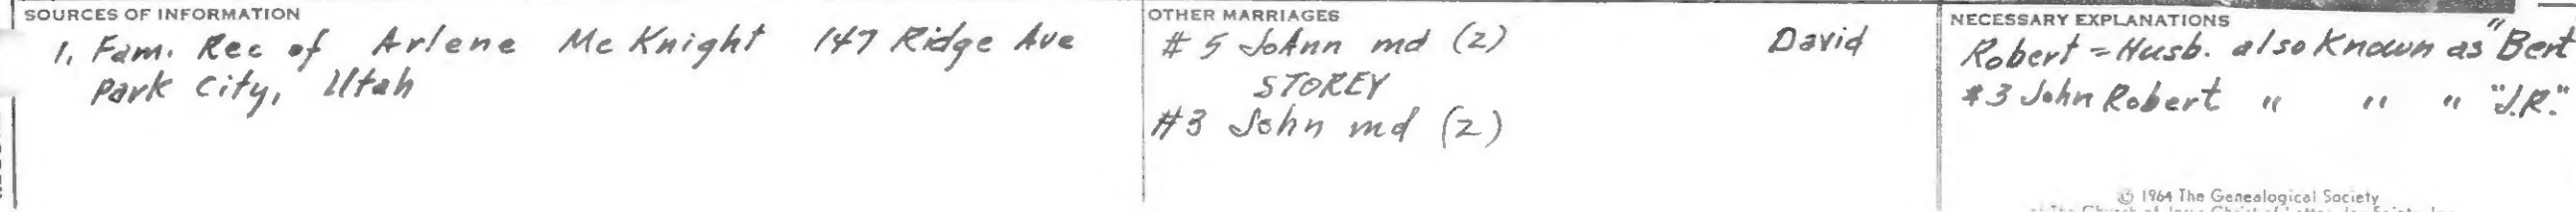 SOURCES OF INFORMATION
1. Fam. Rec of Arlene McKnight 147 Ridge Ave
Park City, Utah
OTHER MARRIAGES
# 5 JoAnn md (2) David
STOREY
#3 John md (2)
NECESSARY EXPLANATIONS
Robert = Husb. also Known as "Bert
#3 John Robert " " " "J.R."
© 1964 The Genealogical Society